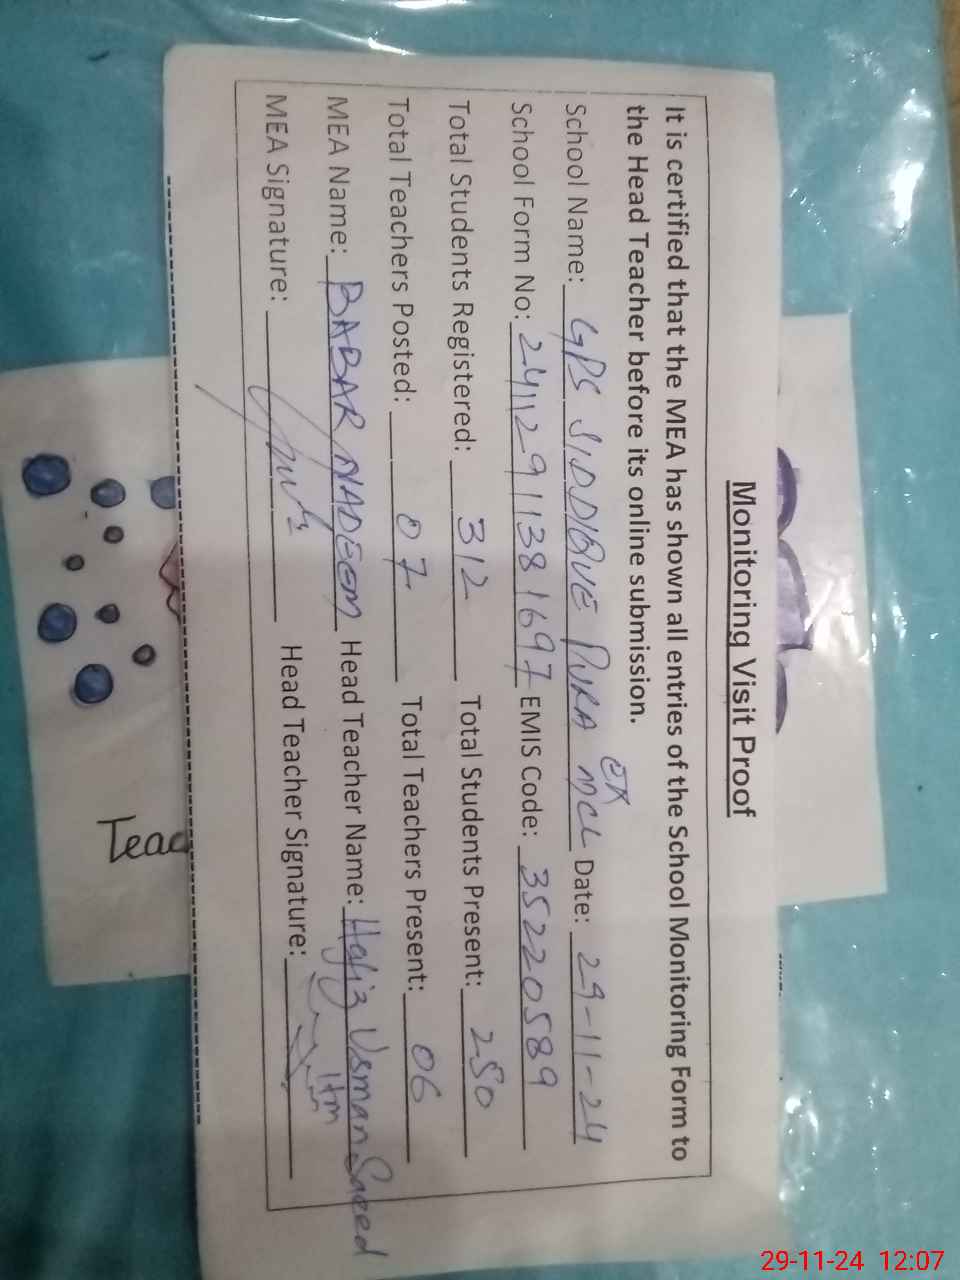 Monitoring Visit Proof
It is certified that the MEA has shown all entries of the School Monitoring Form to
the Head Teacher before its online submission.
School Name: GPS SIDDIQUE PURA MCL Date: 29-11-24
School Form No: 24112911381697 EMIS Code: 35220589
Total Students Registered: 312 Total Students Present: 250
Total Teachers Posted: 07 Total Teachers Present: 06
MEA Name: BABAR NADEEM Head Teacher Name: Hafiz Usman Saeed
MEA Signature: Head Teacher Signature:
Teac
29-11-24 12:07